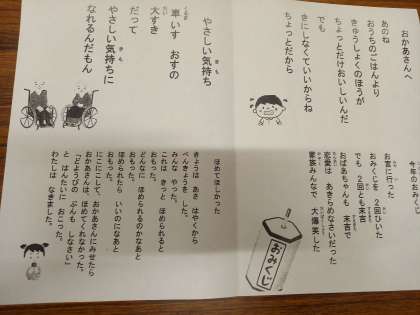 おかあさんへ
あのね
おうちのごはんより
きゅうしょくのほうが
ちょっとだけおいしいんだ
でも
きにしなくていいからね
ちょっとだから
やさしい気持ち
車いす おすの
大すき
だって
やさしい気持ちに
なれるんだもん
今年のおみくじ
お宮に行った
おみくじを 2回ひいた
でも 2回とも末吉
おばあちゃんも 末吉で
恋愛は あきらめなさいだった
家族みんなで 大爆笑した
おみくじ
ほめてほしかった
きょうは あさ はやくから
べんきょうを した。
みんな やった。
これは きっと ほめられると
おもった。
どんなに ほめられるのかなあと
おもった。
ほめられたら いいのになあと
おもった。
にこにこして、おかあさんにみせたら
おかあさんは、ほめてくれなかった。
「どようびの ぶんも しなさい」
と はんたいに おこった。
わたしは なきました。